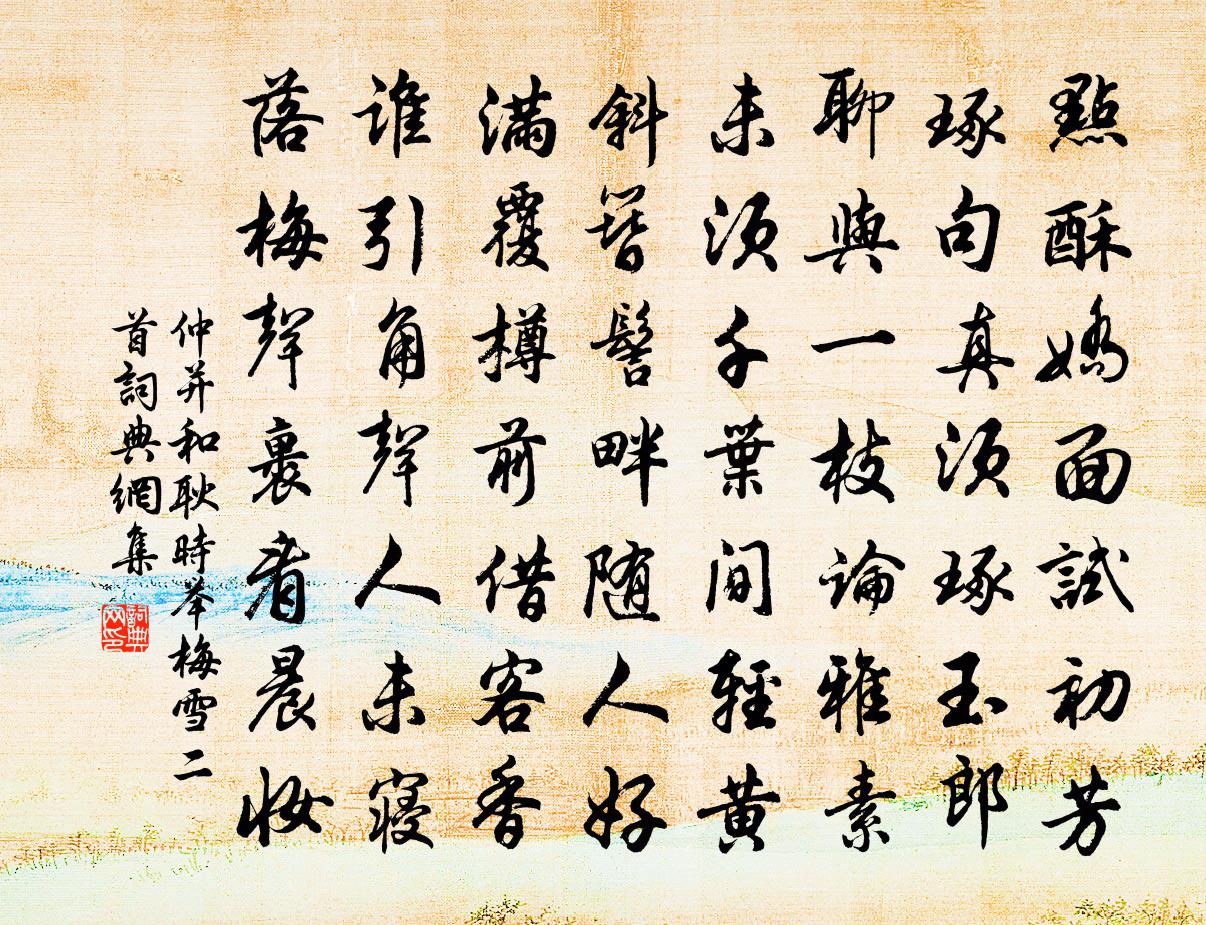 點酥嬌面試初芳
琢句真須琢玉郎
聊與一枝論雅素
未須千葉間輕黃
斜簪髻畔随人好
滿覆樽前借客香
谁引角聲人未寢
落梅聲裏看晨妝
仲并和耿時举梅雪二
首詞典網集
詞典网印